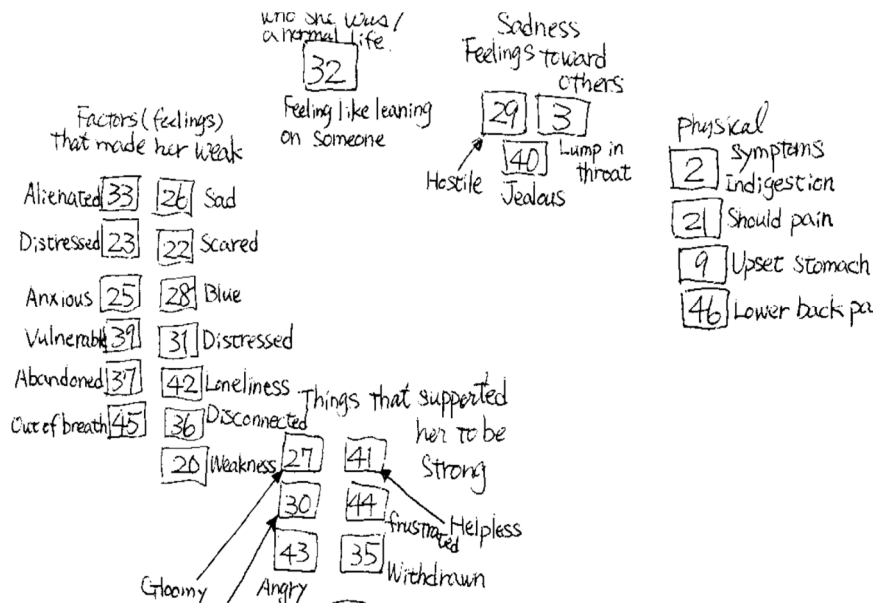 who she was/
a normal life.
32
Feeling like leaning
on someone
Sadness
Feelings toward
others
29 3
Hostile 40 Lump in
throat
Jealous
Physical
symptoms
2 Indigestion
21 Should pain
9 Upset stomach
46 Lower back pa
Factors (feelings)
that made her weak
Alienated 33 26 Sad
Distressed 23 22 Scared
Anxious 25 28 Blue
Vulnerable 39 31 Distressed
Abandoned 37 42 Loneliness
Out of breath 45 36 Disconnected
20 Weakness
Things that supported
her to be
strong
27 41
30 44 frustrated Helpless
43 35 Withdrawn
Gloomy Angry